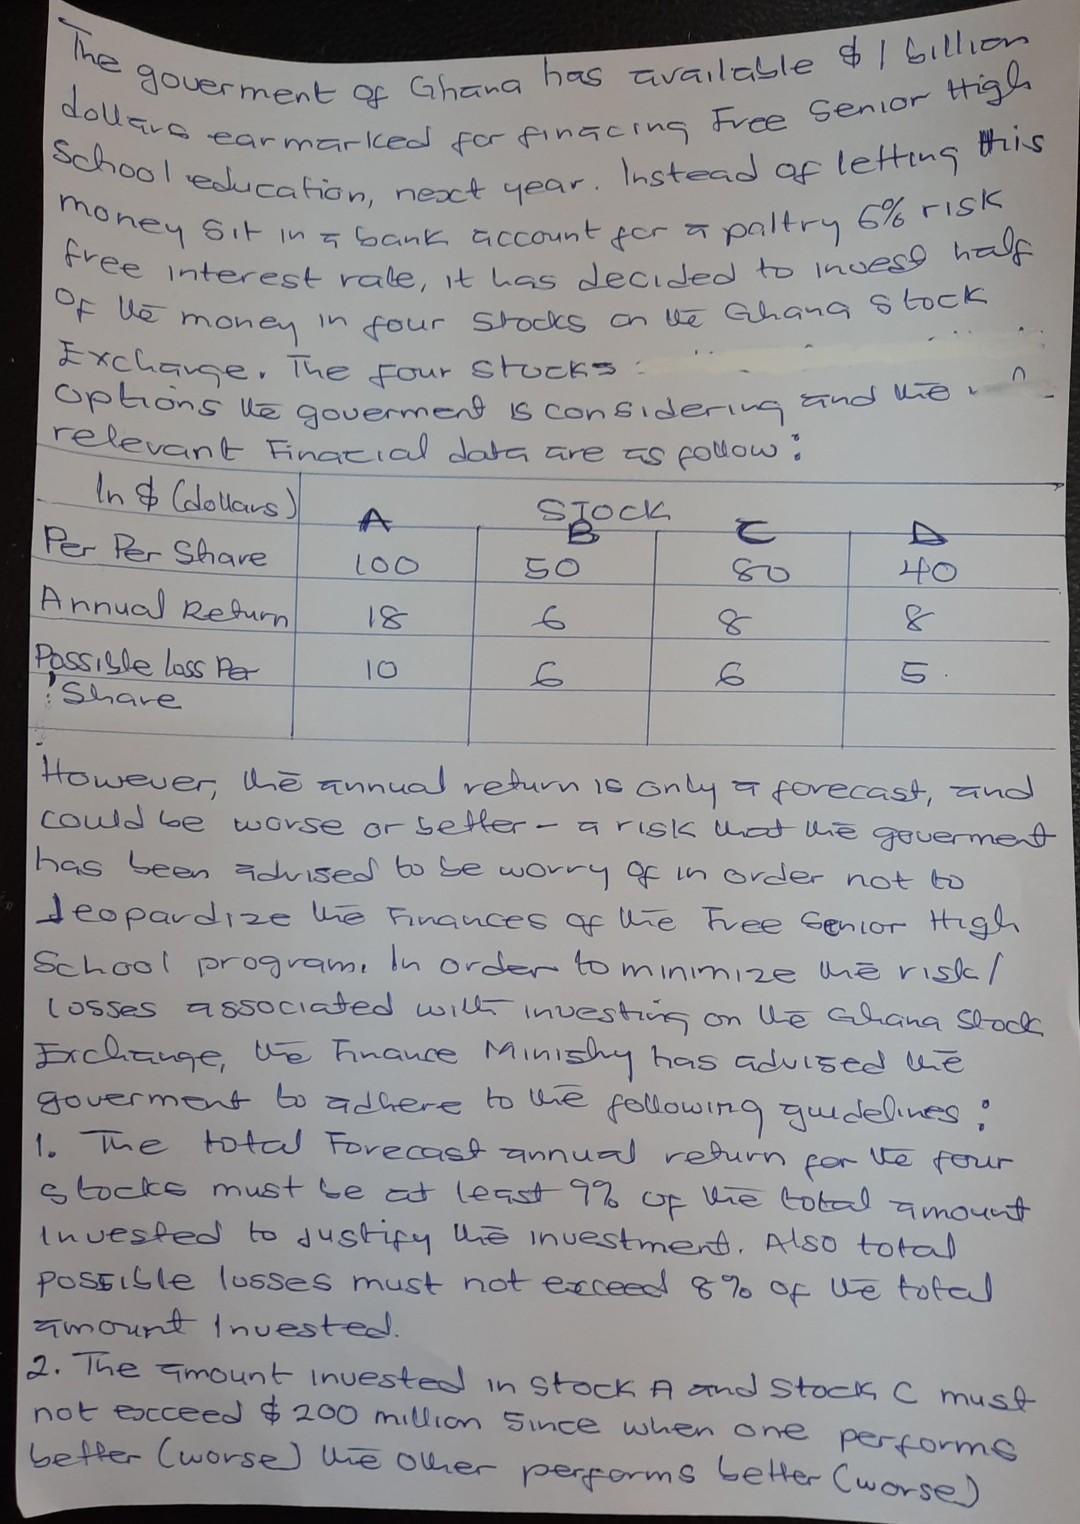 The goverment of Ghana has available $ 1 billion
dollars earmarked for finacing Free Senior High
School education, next year. Instead of letting this
money sit in a bank account for a paltry 6% risk
free interest rate, it has decided to invest half
of the money in four stocks on the Ghana Stock
Exchange. The four stocks :
options the goverment is considering and the
relevant Finacial data are as follow :
In $ (dollars) STOCK
A B C D
Per Per Share 100 50 80 40
Annual Return 18 6 8 8
Possible loss Per 10 6 6 5
Share
However, the annual return is only a forecast, and
could be worse or better - a risk that the goverment
has been advised to be worry of in order not to
Jeopardize the Finances of the Free Senior High
School program. In order to minimize the risk/
losses associated with investing on the Ghana Stock
Exchange, the Finance Ministry has advised the
goverment to adhere to the following guidelines :
1. The total Forecast annual return for the four
stocks must be at least 9% of the total amount
Invested to justify the investment. Also total
possible losses must not exceed 8% of the total
amount Invested.
2. The amount invested in stock A and Stock C must
not exceed $ 200 million Since when one performs
better (worse) the other performs better (worse)